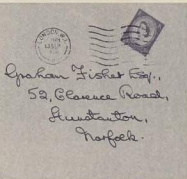 LONDON, W.1.
Graham Fisher Esq.,
52, Clarence Road,
Hunstanton,
Norfolk.